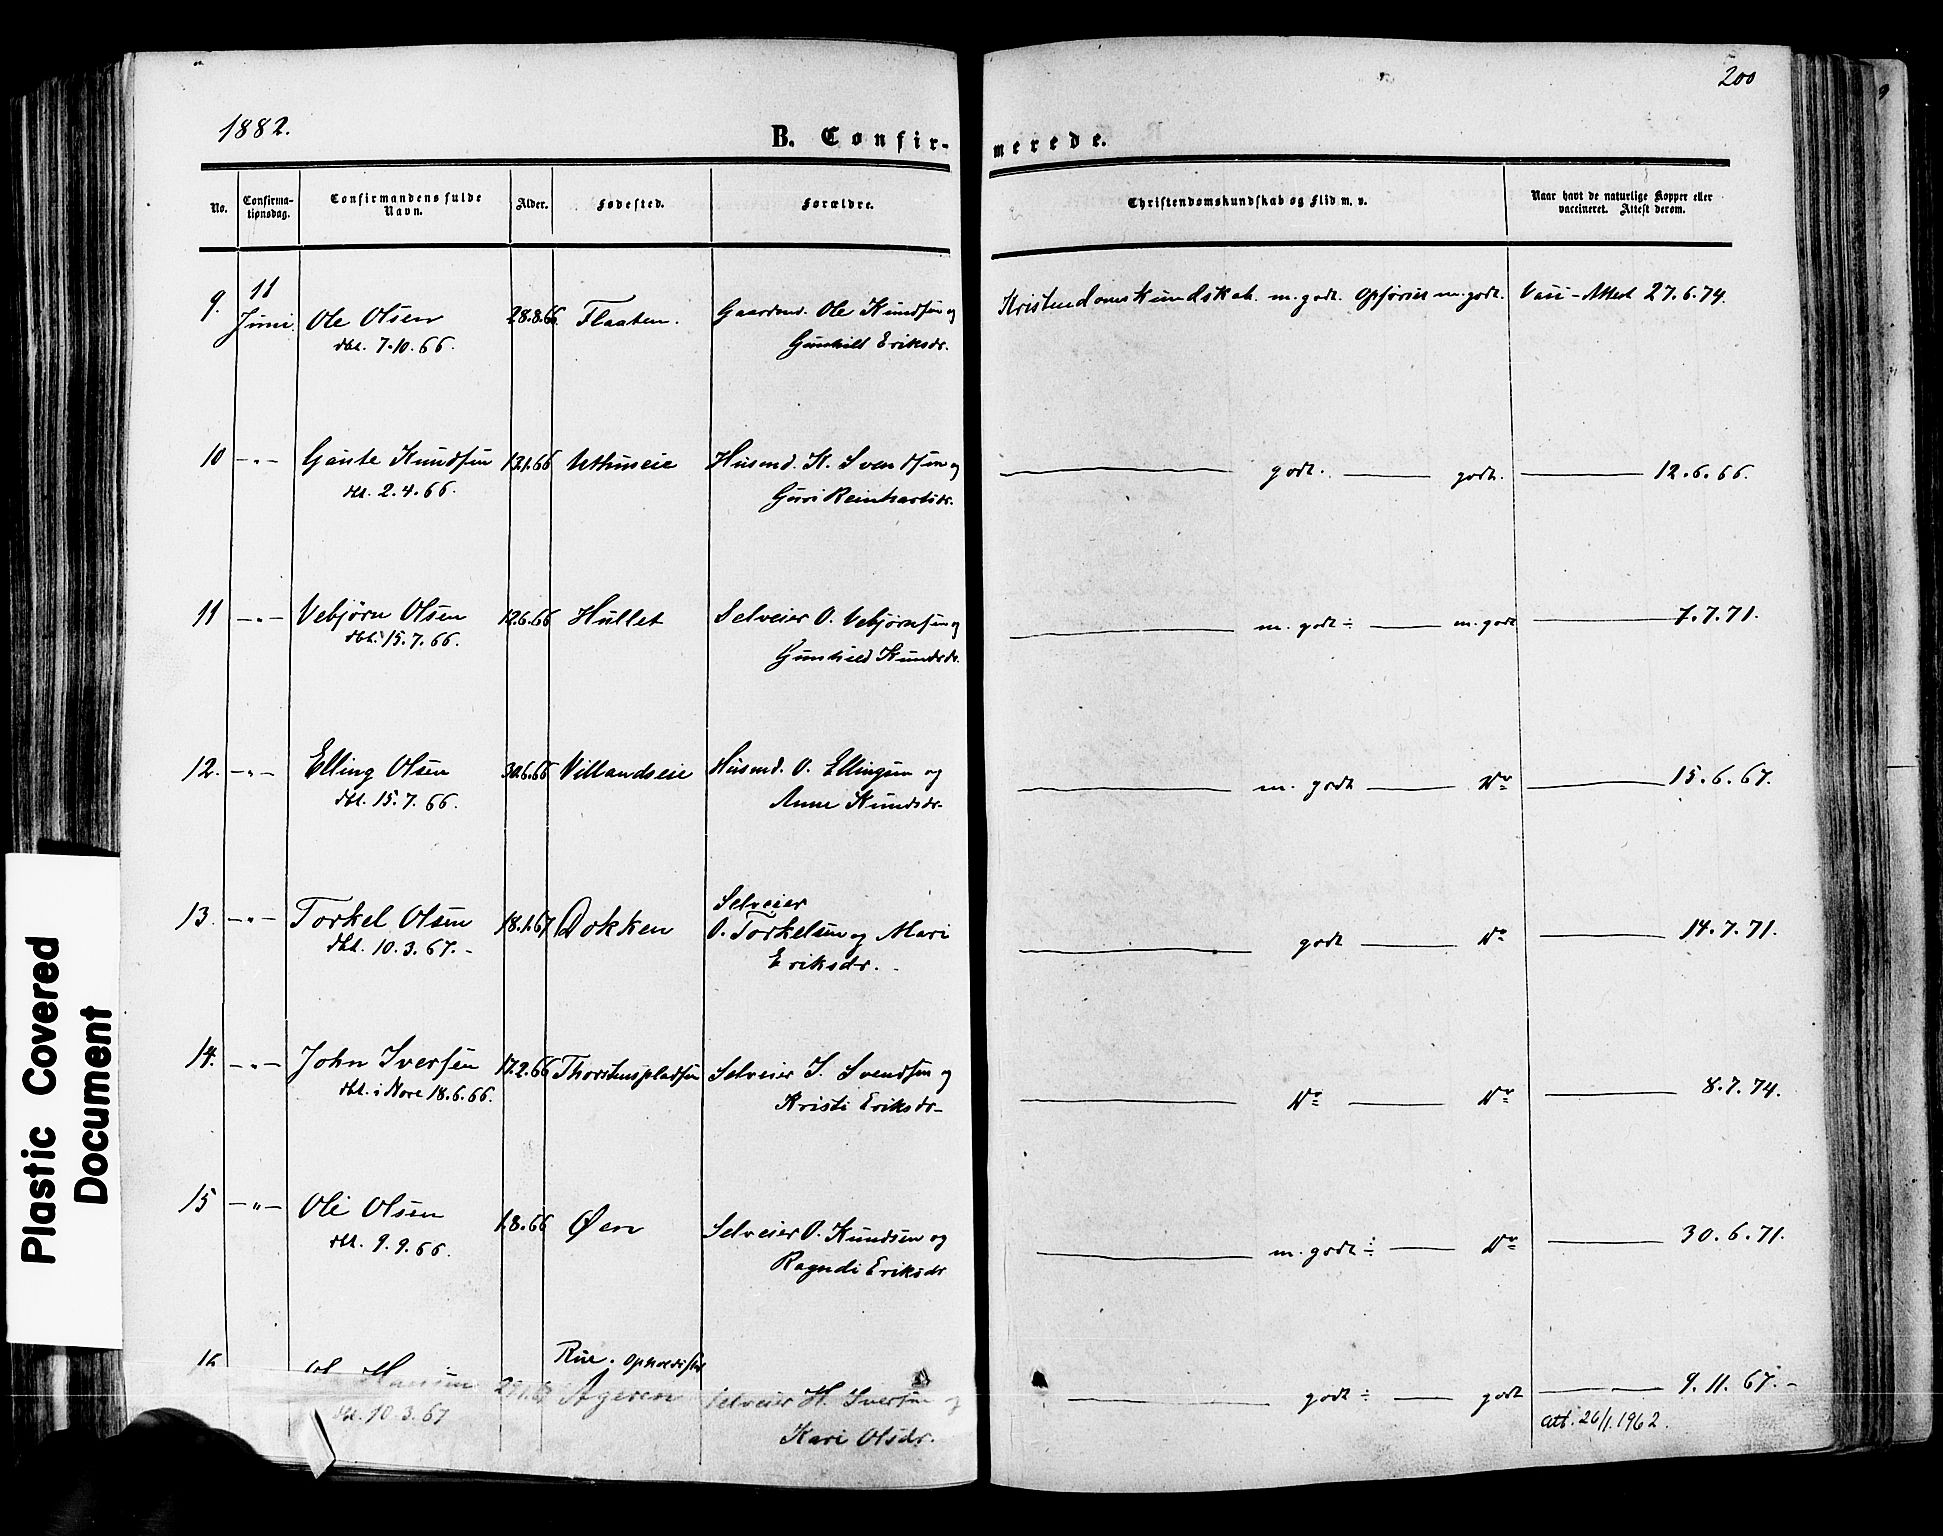 200
1882.
B. Confirmerede.
No. Confirmationsdag. Confirmandens fulde Navn. Alder. Fødested. Forældre. Christendomskundskab og Flid m. v. Naar havt de naturlige Kopper eller vaccineret. Attest derom.
9. 11 Juni Ole Olsen 28.8.66 Flaaten. Gaardm. Ole Knudsen og Kristendomskundskab m. godt. Opførsel m. godt. Vacc-Attest 27.6.74.
dbt. 7.10.66. Gunhild Eriksdr.
10 -"- Gaute Knudsen 12.1.66 Uthuseie Husmd. K. Svendsen og godt. godt. 12.6.66.
dbt. 2.4.66. Guri Reinhartsdr.
11 -"- Vebjørn Olsen 12.6.66 Hullet Selveier O. Vebjørnsen og m. godt ÷ m. godt 7.7.71.
dbt. 15.7.66. Gunhild Knudsdr.
12. -"- Elling Olsen 30.6.66 Villandseie Husmd. O. Ellingsen og m. godt Do 15.6.67.
dbt. 15.7.66. Anne Knudsdr.
Selveier
13. -"- Torkel Olsen 18.1.67 Dokken O. Torkelsen og Mari godt Do 14.7.71.
dbt. 10.3.67.- Eriksdr.
14. -"- John Iversen 17.2.66 Thorstenspladsen Selveier I. Svendsen og Do Do 8.7.74.
dbt. i Nore 18.6.66. Kristi Eriksdr.
15 -"- Ole Olsen 1.8.66 Øen Selveier O. Knudsen og m. godt ÷ Do 30.6.71.
dbt. 9.9.66. Ragndi Eriksdr
16 Rue. Opholdssted
Hansen Ageren Selveier H. Iversen og godt ÷ godt 9.11.67.-
dbt. 10.3.67 Kari Olsdr. att. 26/1.1962.
Plastic Covered
Document